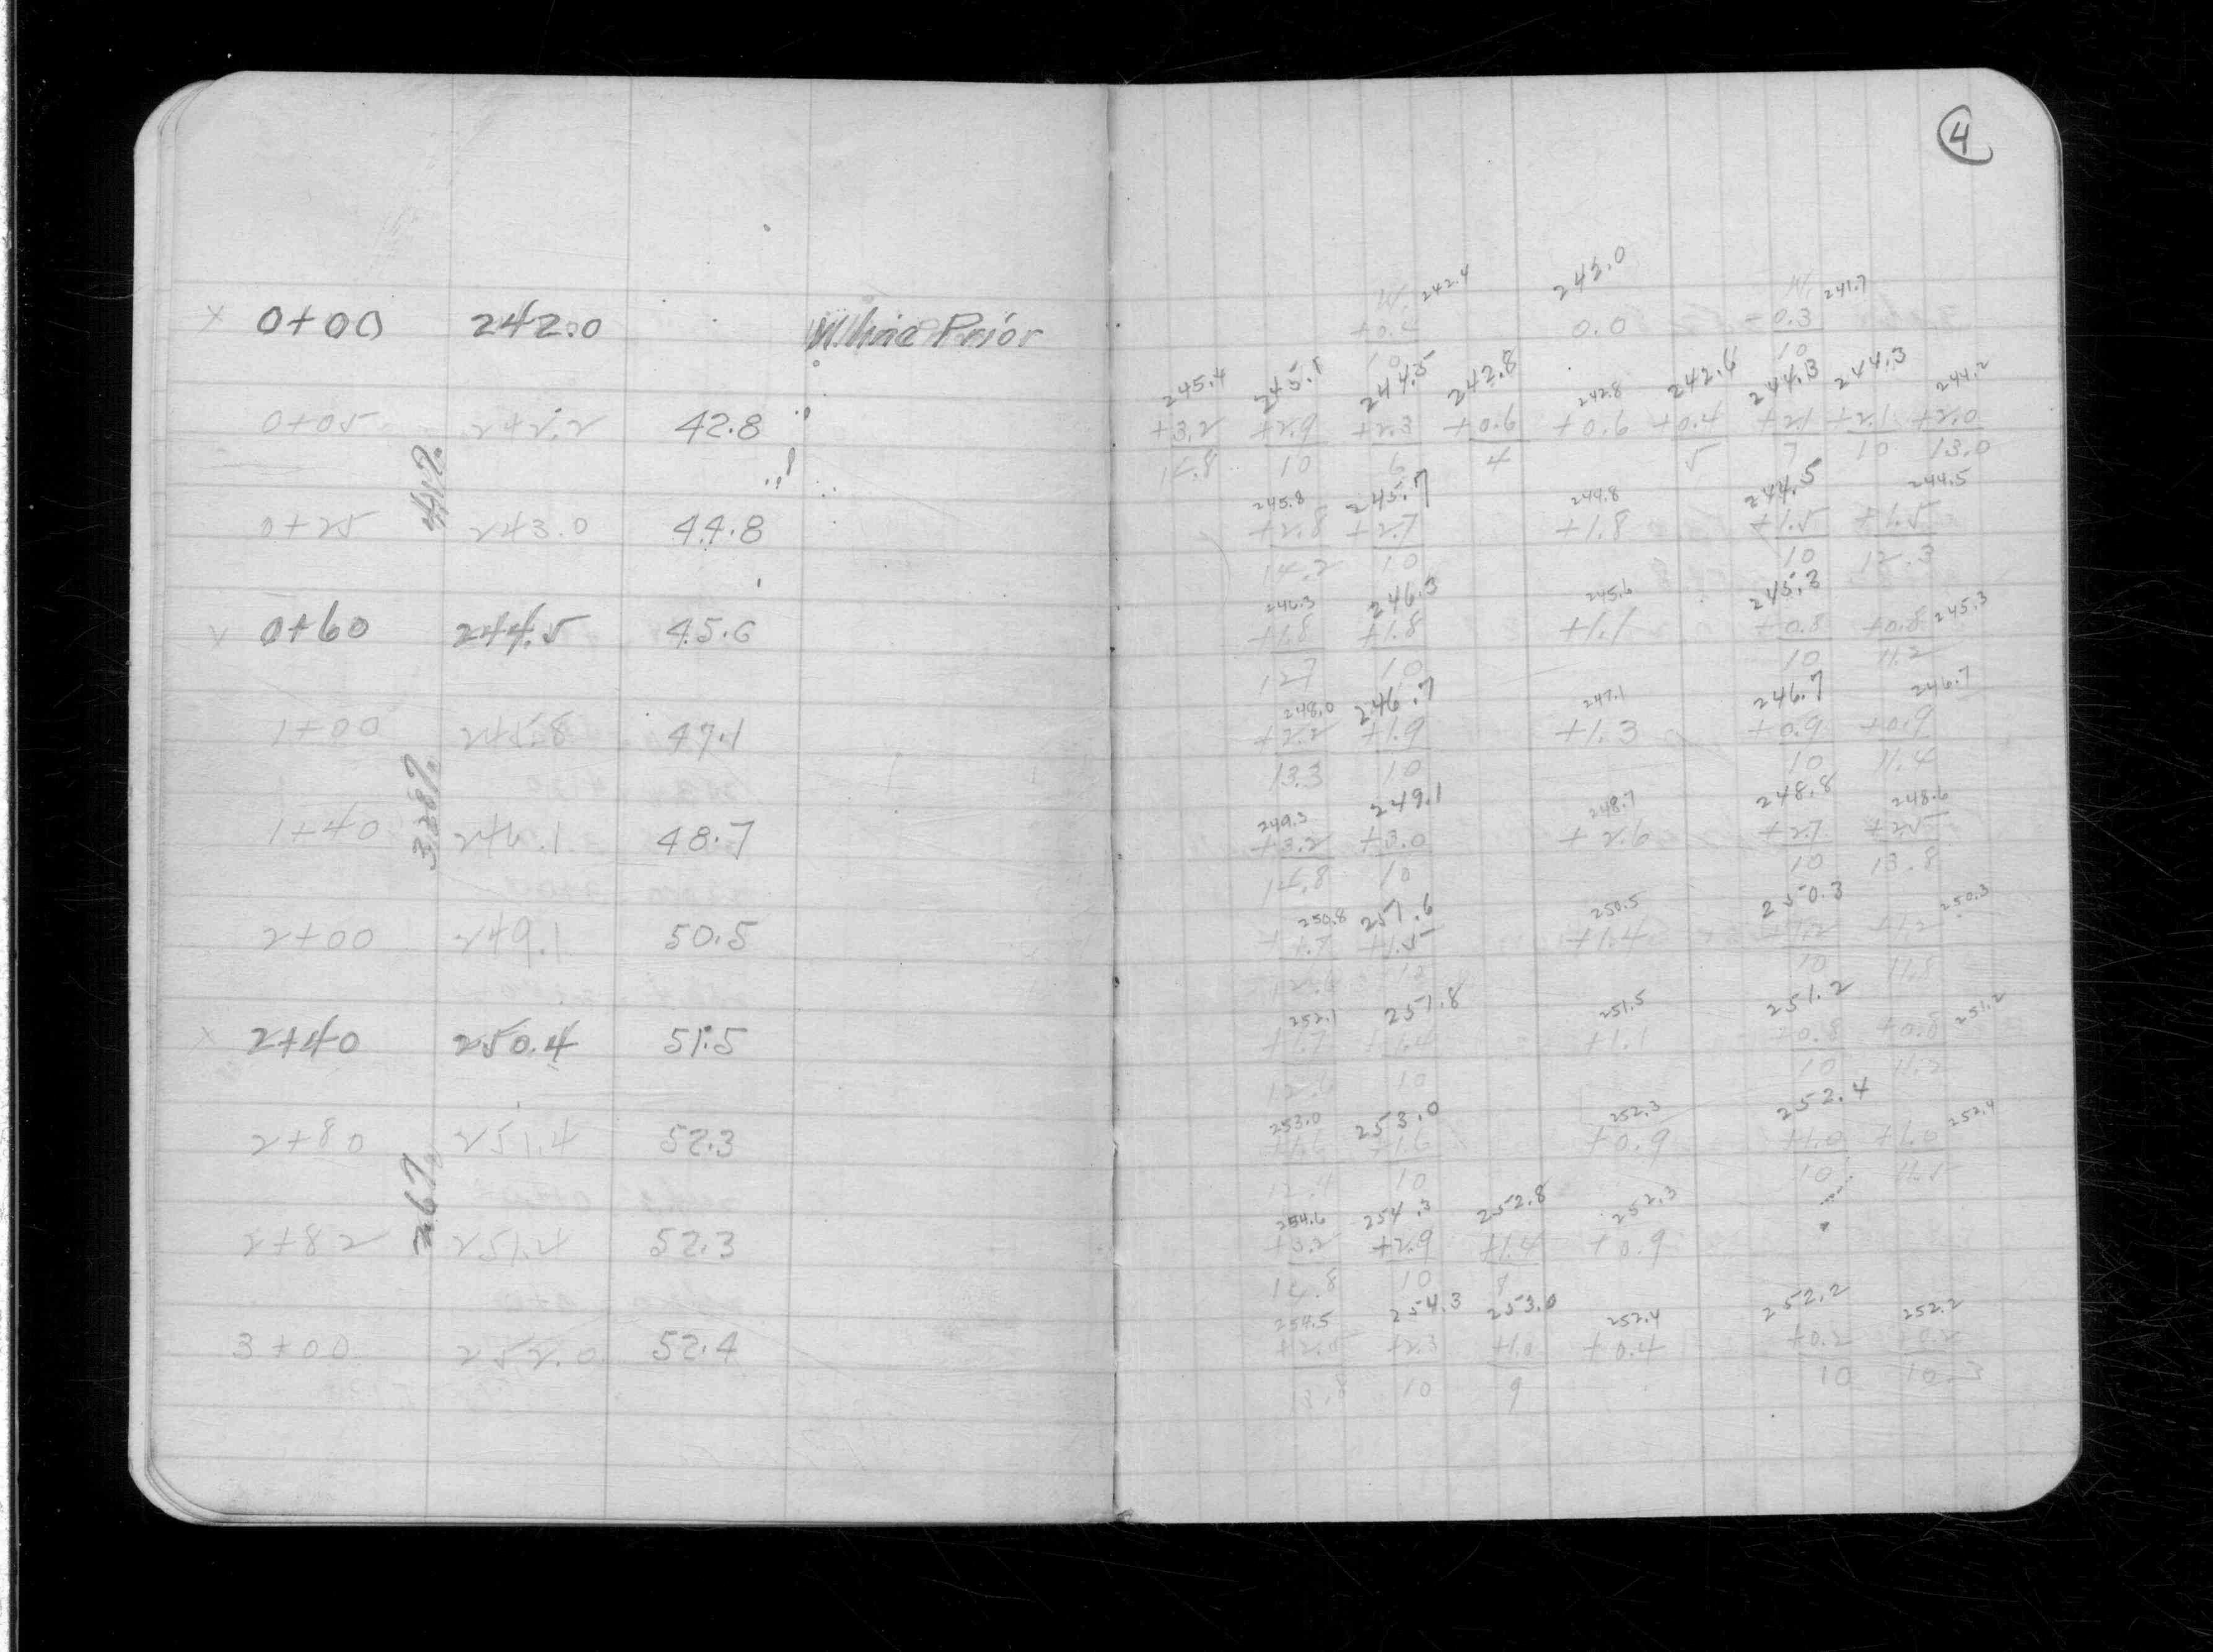 4
x 0+00 242.0 Prior
0+05 242.2 42.8
0+25 243.0 44.8
0+60 244.5 45.6
1+00 245.8 47.1
3.28%
1+40 246.1 48.7
2+00 249.1 50.5
x 2+40 250.4 51.5
2+80 251.4 52.3
2.67%
2+82 251.4 52.3
3+00 252.0 52.4
242.4 242.0 241.7
0.0 -0.3
10 10
245.4 245.1 244.5 242.8 242.8 242.6 244.3 244.3 244.2
+3.2 +2.9 +2.3 +0.6 +0.6 +0.4 +2.1 +2.1 +2.0
14.8 10 6 4 5 7 10 13.0
245.8 245.7 244.8 244.5 244.5
+2.8 +2.7 +1.8 +1.5 +1.5
14.2 10 10 12.3
246.3 246.3 245.6 245.3 245.3
+1.8 +1.8 +1.1 +0.8 +0.8
12.7 10 10 11.2
248.0 246.7 247.1 246.7 246.7
+2.2 +1.9 +1.3 +0.9 +0.9
13.3 10 10 11.4
249.3 249.1 248.7 248.8 248.6
+3.2 +3.0 +2.6 +2.7 +2.5
14.8 10 10 13.8
250.8 251.6 250.5 250.3 250.3
+1.7 +1.5 +1.4 +1.2 +1.2
12.6 10 10 11.8
252.1 251.8 251.5 251.2 251.2
+1.7 +1.4 +1.1 +0.8 +0.8
12.6 10 10 11.2
253.0 253.0 252.3 252.4 252.4
+1.6 +1.6 +0.9 +1.0 +1.0
12.4 10 10 11.5
254.6 254.3 252.8 252.3
+3.2 +2.9 +1.4 +0.9
14.8 10 8
254.5 254.3 253.0 252.4 252.2 252.2
+2.5 +2.3 +1.0 +0.4 +0.2 +0.2
13.8 10 9 10 10.3